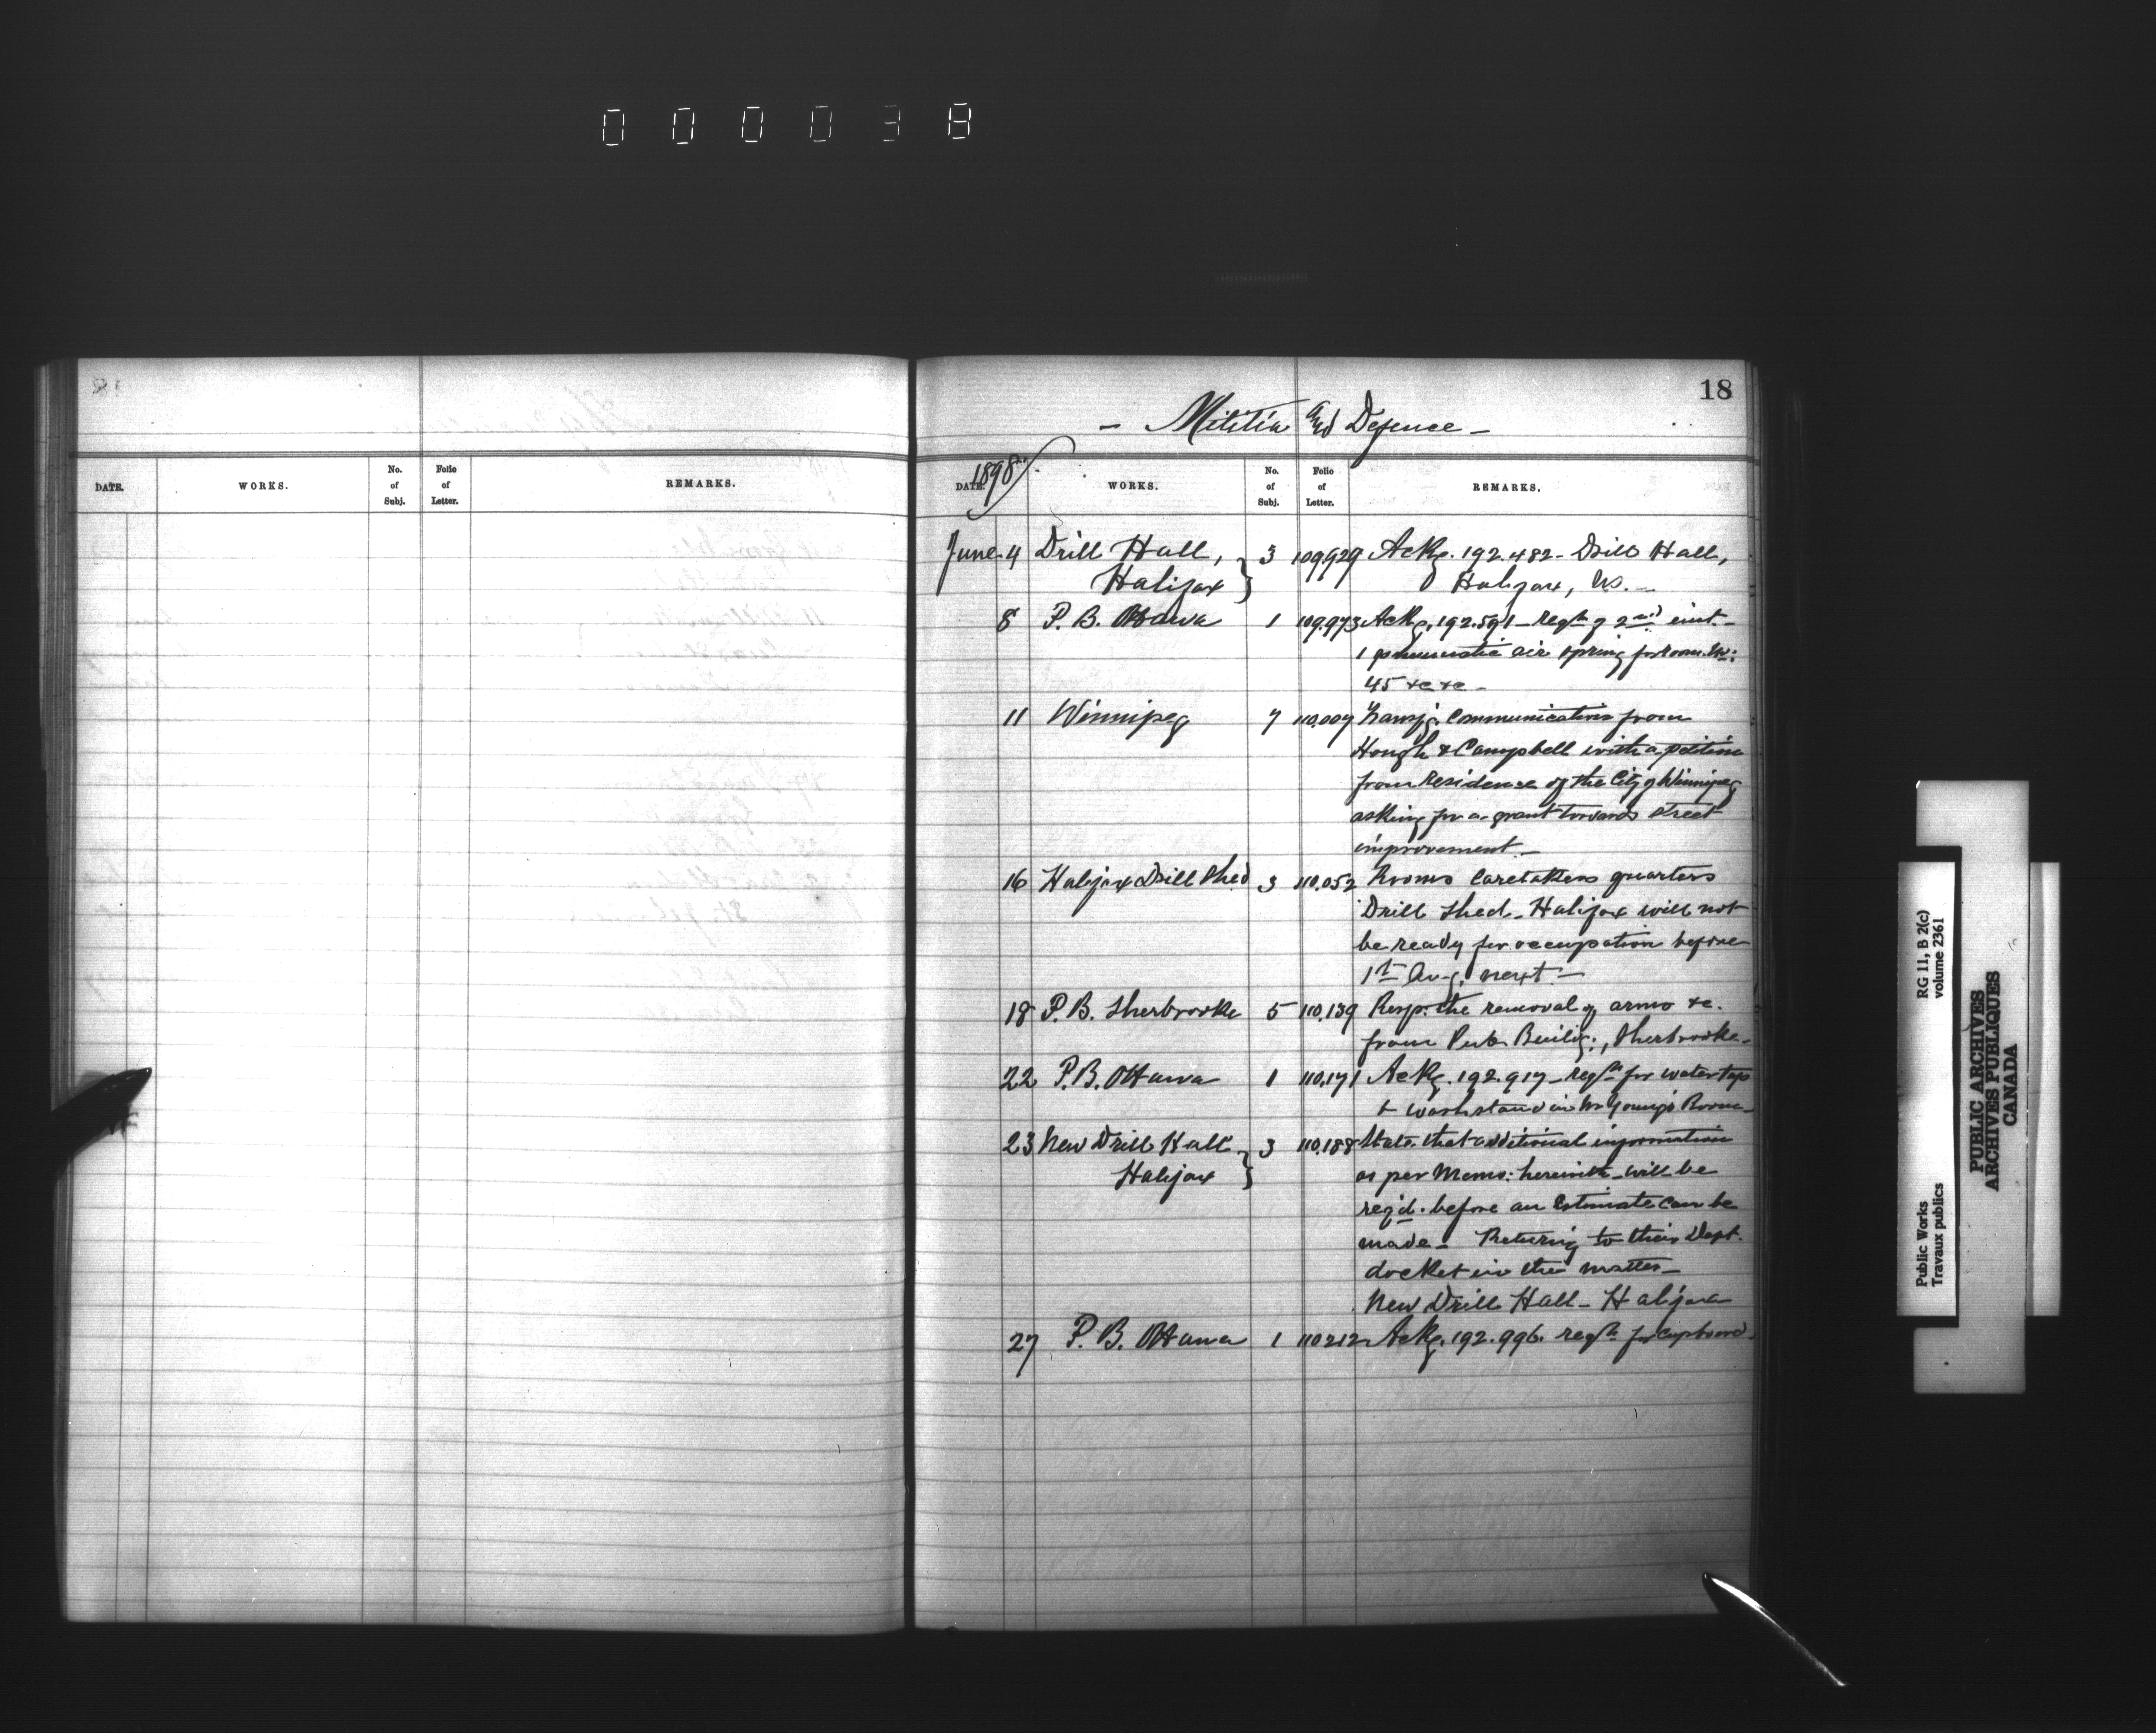 000038
18
- Militia and Defence -
DATE. WORKS. No. of Subj. Folio of Letter. REMARKS.
1898
DATE. WORKS. No. of Subj. Folio of Letter. REMARKS.
June 4 Drill Hall, 3 109,929 Ackg. 192.482 - Drill Hall,
Halifax } Halifax, N.S. -
8 P. B. Ottawa 1 109.973 Ackg. 192.591 - reqn of 2nd inst. -
1 pneumatic air spring for room No:
45 &c &c -
11 Winnipeg 7 110.007 Transg. Communication from
Hough & Campbell with a petition
from residence of the City of Winnipeg
asking for a grant towards street
improvement. -
16 Halifax Drill Shed 3 110.052 Rooms Caretakers quarters
Drill Shed - Halifax will not
be ready for occupation before
1st Aug. next -
18 P. B. Sherbrooke 5 110,139 Resp. the removal of arms &c.
from Pub. Buildg., Sherbrooke -
22 P. B. Ottawa 1 110,171 Ackg. 192.917 - reqn for water tap
& washstand in Mr Young's Room -
23 New Drill Hall 3 110,188 State that additional information
Halifax } as per Memo: herewith - will be
req'd. before an Estimate can be
made - Returning to their Dept.
docket in the matter -
New Drill Hall - Halifax
27 P. B. Ottawa 1 110212 Ackg. 192.996. reqn for cupboard -
Public Works RG 11, B 2(c)
Travaux publics volume 2361
PUBLIC ARCHIVES
ARCHIVES PUBLIQUES
CANADA